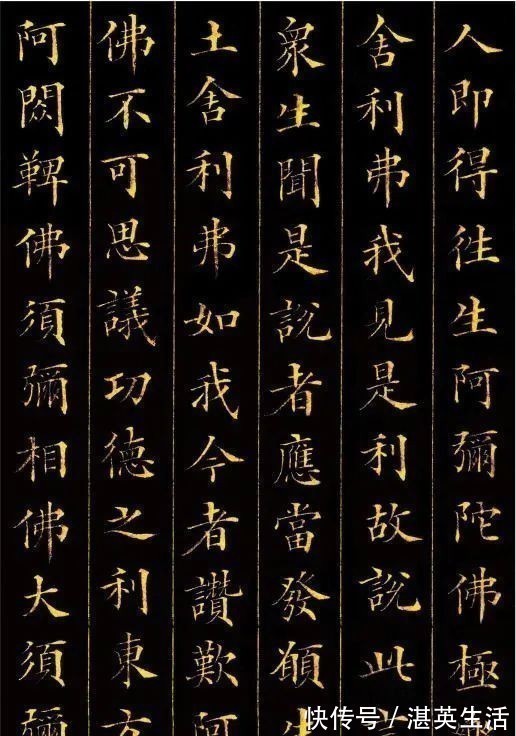 人即得徃生阿彌陀佛極
舍利弗我見是利故說此言
衆生聞是說者應當發願生
土舍利弗如我今者讚歎阿
佛不可思議功德之利東方
阿閦鞞佛須彌相佛大須彌
快传号／湛英生活